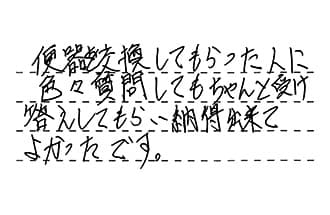 便器交換してもらった人に
色々質問してもちゃんと受け
答えしてもらい納得出来て
よかったです。